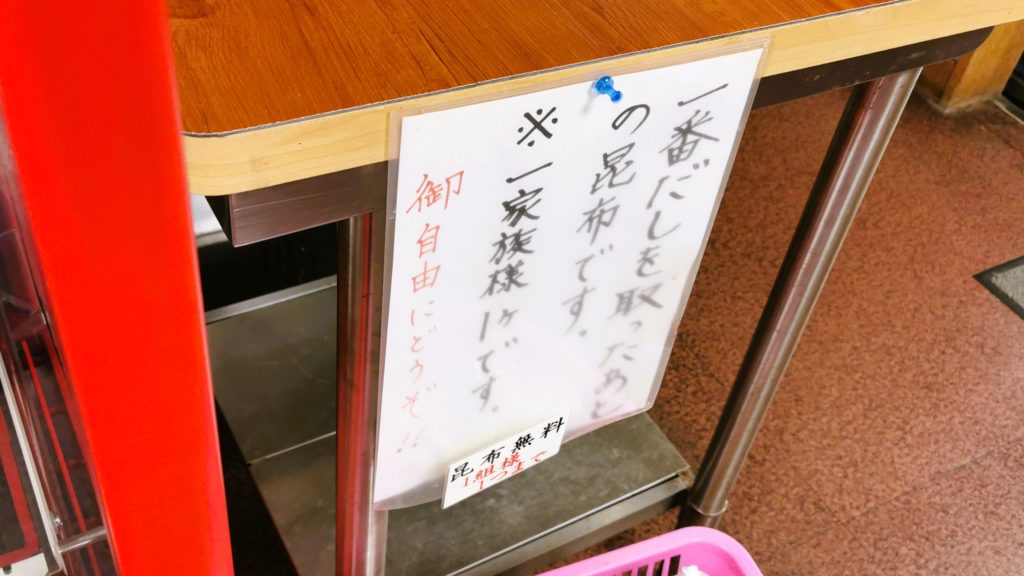 一番だしを取ったあと
の昆布です。
※一家族様1ヶです。
御自由にどうぞ!!
昆布無料
1組様
1つまで